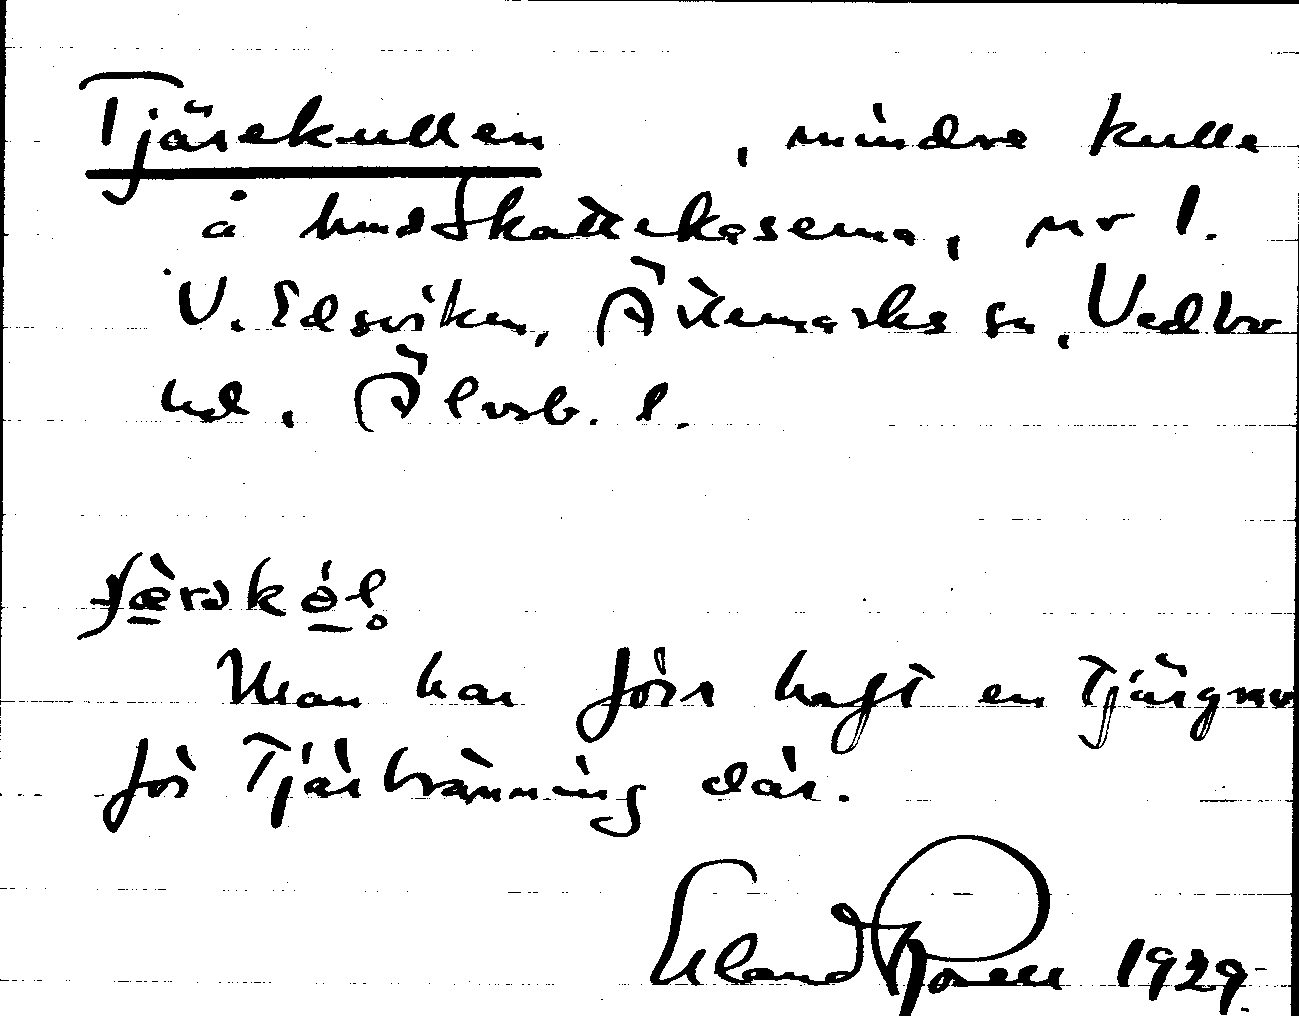 Tjärekullen , mindre kulle
å Skattekaserna, nr 1.
V. Edsviken, Ärtemarks sn, Vedbo
hd. Älvsb. l.
Man har förr haft en Tjärgrav
för Tjärbränning där.
Erland Rosell 1929